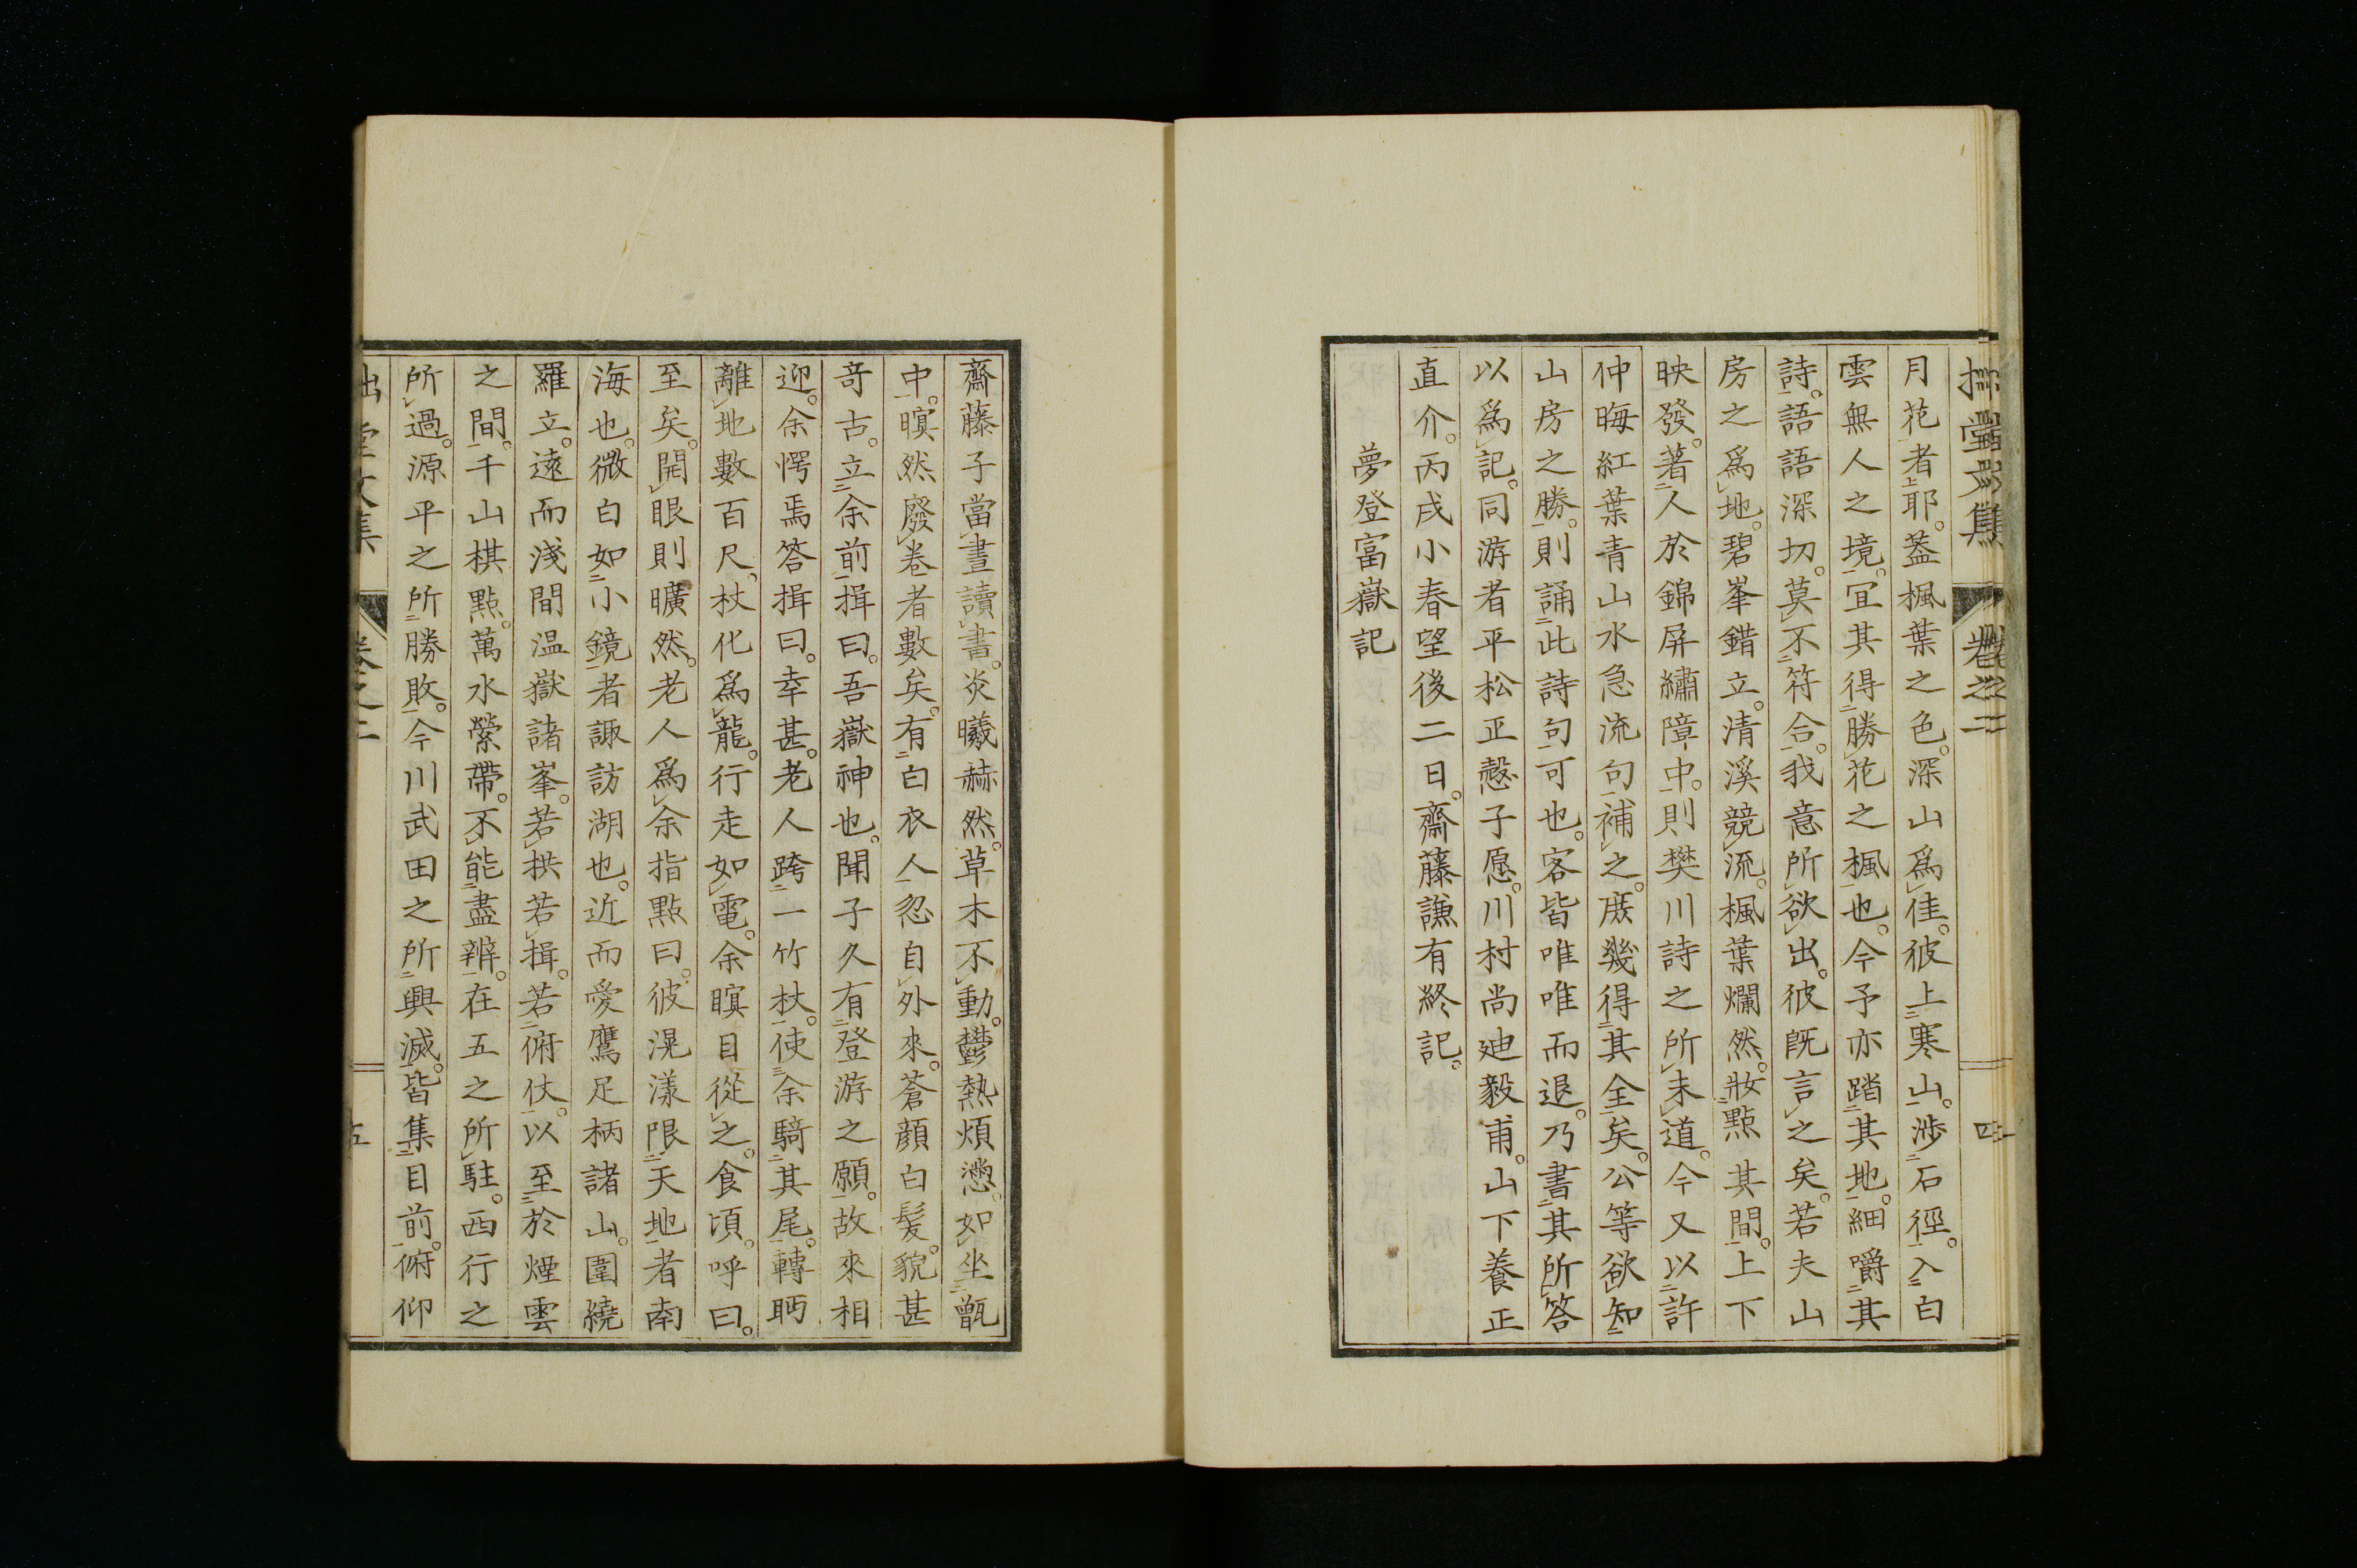 月花者耶。葢楓葉之色。深山爲佳。彼上寒山。渉石徑。入白
雲無人之境。宜其得勝花之楓也。今予亦踏其地。細嚼其
詩。語語深切。莫不符合。我意所欲出。彼既言之矣。若夫山
房之爲地。碧峯錯立。清溪競流。楓葉爛然。妝點其間。上下
映發。著人於錦屏繡障中。則樊川詩之所未道。今又以許
仲晦紅葉青山水急流句補之。庶幾得其全矣。公等欲知
山房之勝。則誦此詩句可也。客皆唯唯而退。乃書其所答
以爲記。同游者平松正愨子愿。川村尚迪毅甫。山下養正
直介。丙戌小春望後二日。齋藤謙有終記。
夢登富嶽記
齋藤子當晝讀書。炎曦赫然。草木不動。鬱熱煩懣。如坐甑
中。瞑然廢卷者數矣。有白衣人忽自外來。蒼顔白髮。貌甚
奇古。立余前揖曰。吾嶽神也。聞子久有登游之願。故來相
迎。余愕焉答揖曰。幸甚。老人跨一竹杖。使余騎其尾。轉眄
離地數百尺。杖化爲龍。行走如電。余瞑目從之。食頃。呼曰。
至矣。開眼則曠然。老人爲余指點曰。彼滉漾限天地者南
海也。微白如小鏡者諏訪湖也。近而愛鷹足柄諸山。圍繞
羅立。遠而淺間温嶽諸峯。若拱若揖。若俯伏。以至於煙雲
之間。千山棋點。萬水縈帶。不能盡辨。在五之所駐。西行之
所過。源平之所勝敗。今川武田之所興滅。皆集目前。俯仰